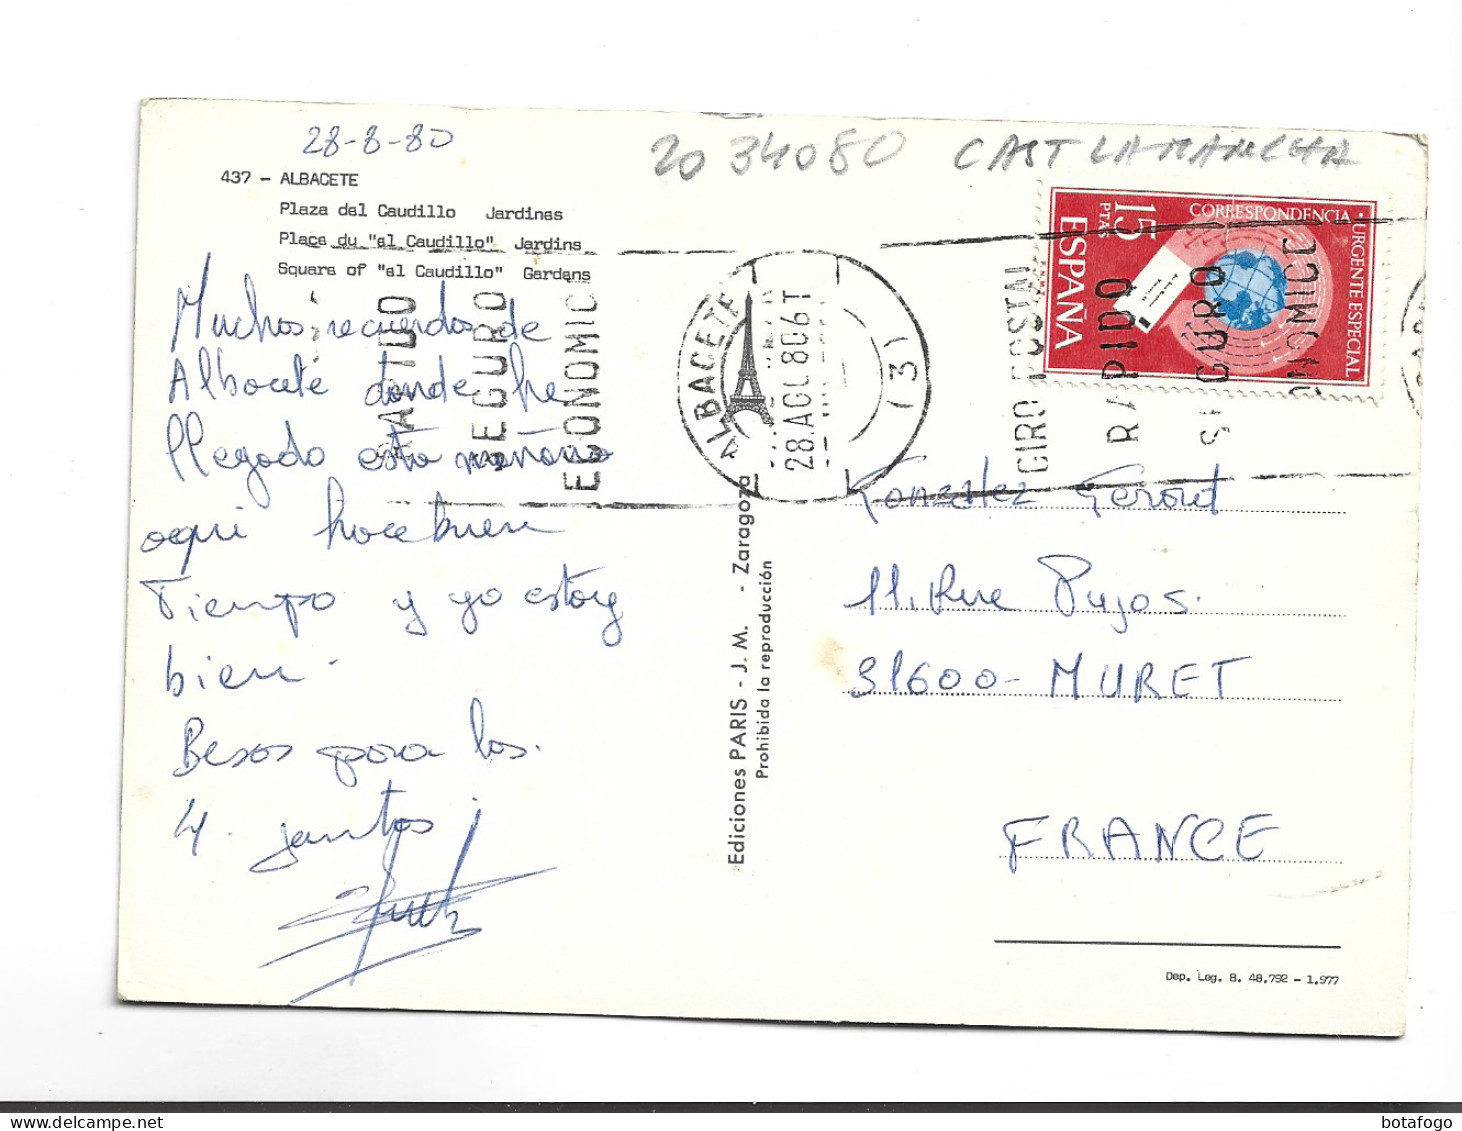 28-8-80
20 34080 CAST LA MANCHA
437 - ALBACETE
Plaza del Caudillo Jardines
Place du "el Caudillo" Jardins
Square of "el Caudillo" Gardens
Muchos recuerdos de
Albacete donde he
llegado esta mañana
aqui hace buen
Tiempo y yo estoy
bien.
Besos para los.
4. juntos
RAPIDO
SEGURO
ECONOMICO
ALBACETE
28.AGO.80 6T
(3)
GIRO POSTAL
RAPIDO
SEGURO
ECONOMICO
CORRESPONDENCIA · URGENTE ESPECIAL
15 PTAS
ESPAÑA
Ediciones PARIS - J. M. - Zaragoza
Prohibida la reproducción
Gonzalez Gerard
11. Rue Pujos.
31600 - MURET
FRANCE
Dep. Leg. B. 48.792 - 1.977
botafogo